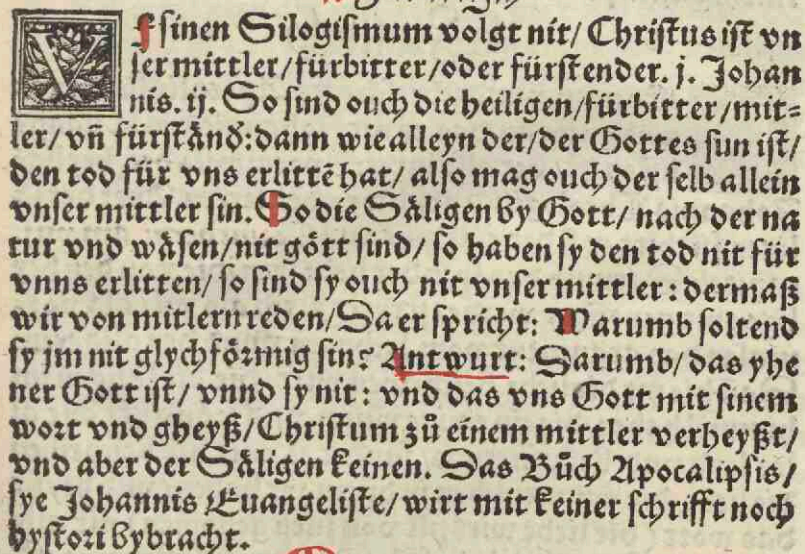 Vſ ſinen Silogiſmum volgt nit/ Chriſtus iſt vn
ſer mittler/fürbitter/oder fürſtender. j. Johan
nis. ij. So ſind ouch die heiligen/fürbitter/mit⸗
ler/ vñ fürſtånd: dann wie alleyn der/der Gottes ſun iſt/
den tod für vns erlittẽ hat/ alſo mag ouch der ſelb allein
vnſer mittler ſin. So die Såligen by Gott/ nach der na
tur vnd wåſen/nit gött ſind/ ſo haben ſy den tod nit für
vnns erlitten/ ſo ſind ſy ouch nit vnſer mittler: dermaß
wir von mitlern reden/ Da er ſpricht: Warumb ſoltend
ſy jm nit glychförmig ſin? Antwurt: Darumb/ das yhe
ner Gott iſt/ vnnd ſy nit: vnd das vns Gott mit ſinem
wort vnd gheyß/Chriſtum zů einem mittler verheyßt/
vnd aber der Såligen keinen. Das Bůch Apocalipſis/
ſye Johannis Euangeliſte/wirt mit keiner ſchrifft noch
hyſtori bybracht.